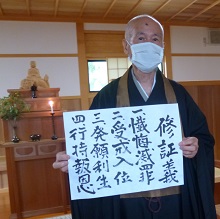 修証義
一懺悔滅罪
二受戒入位
三発願利生
四行持報恩